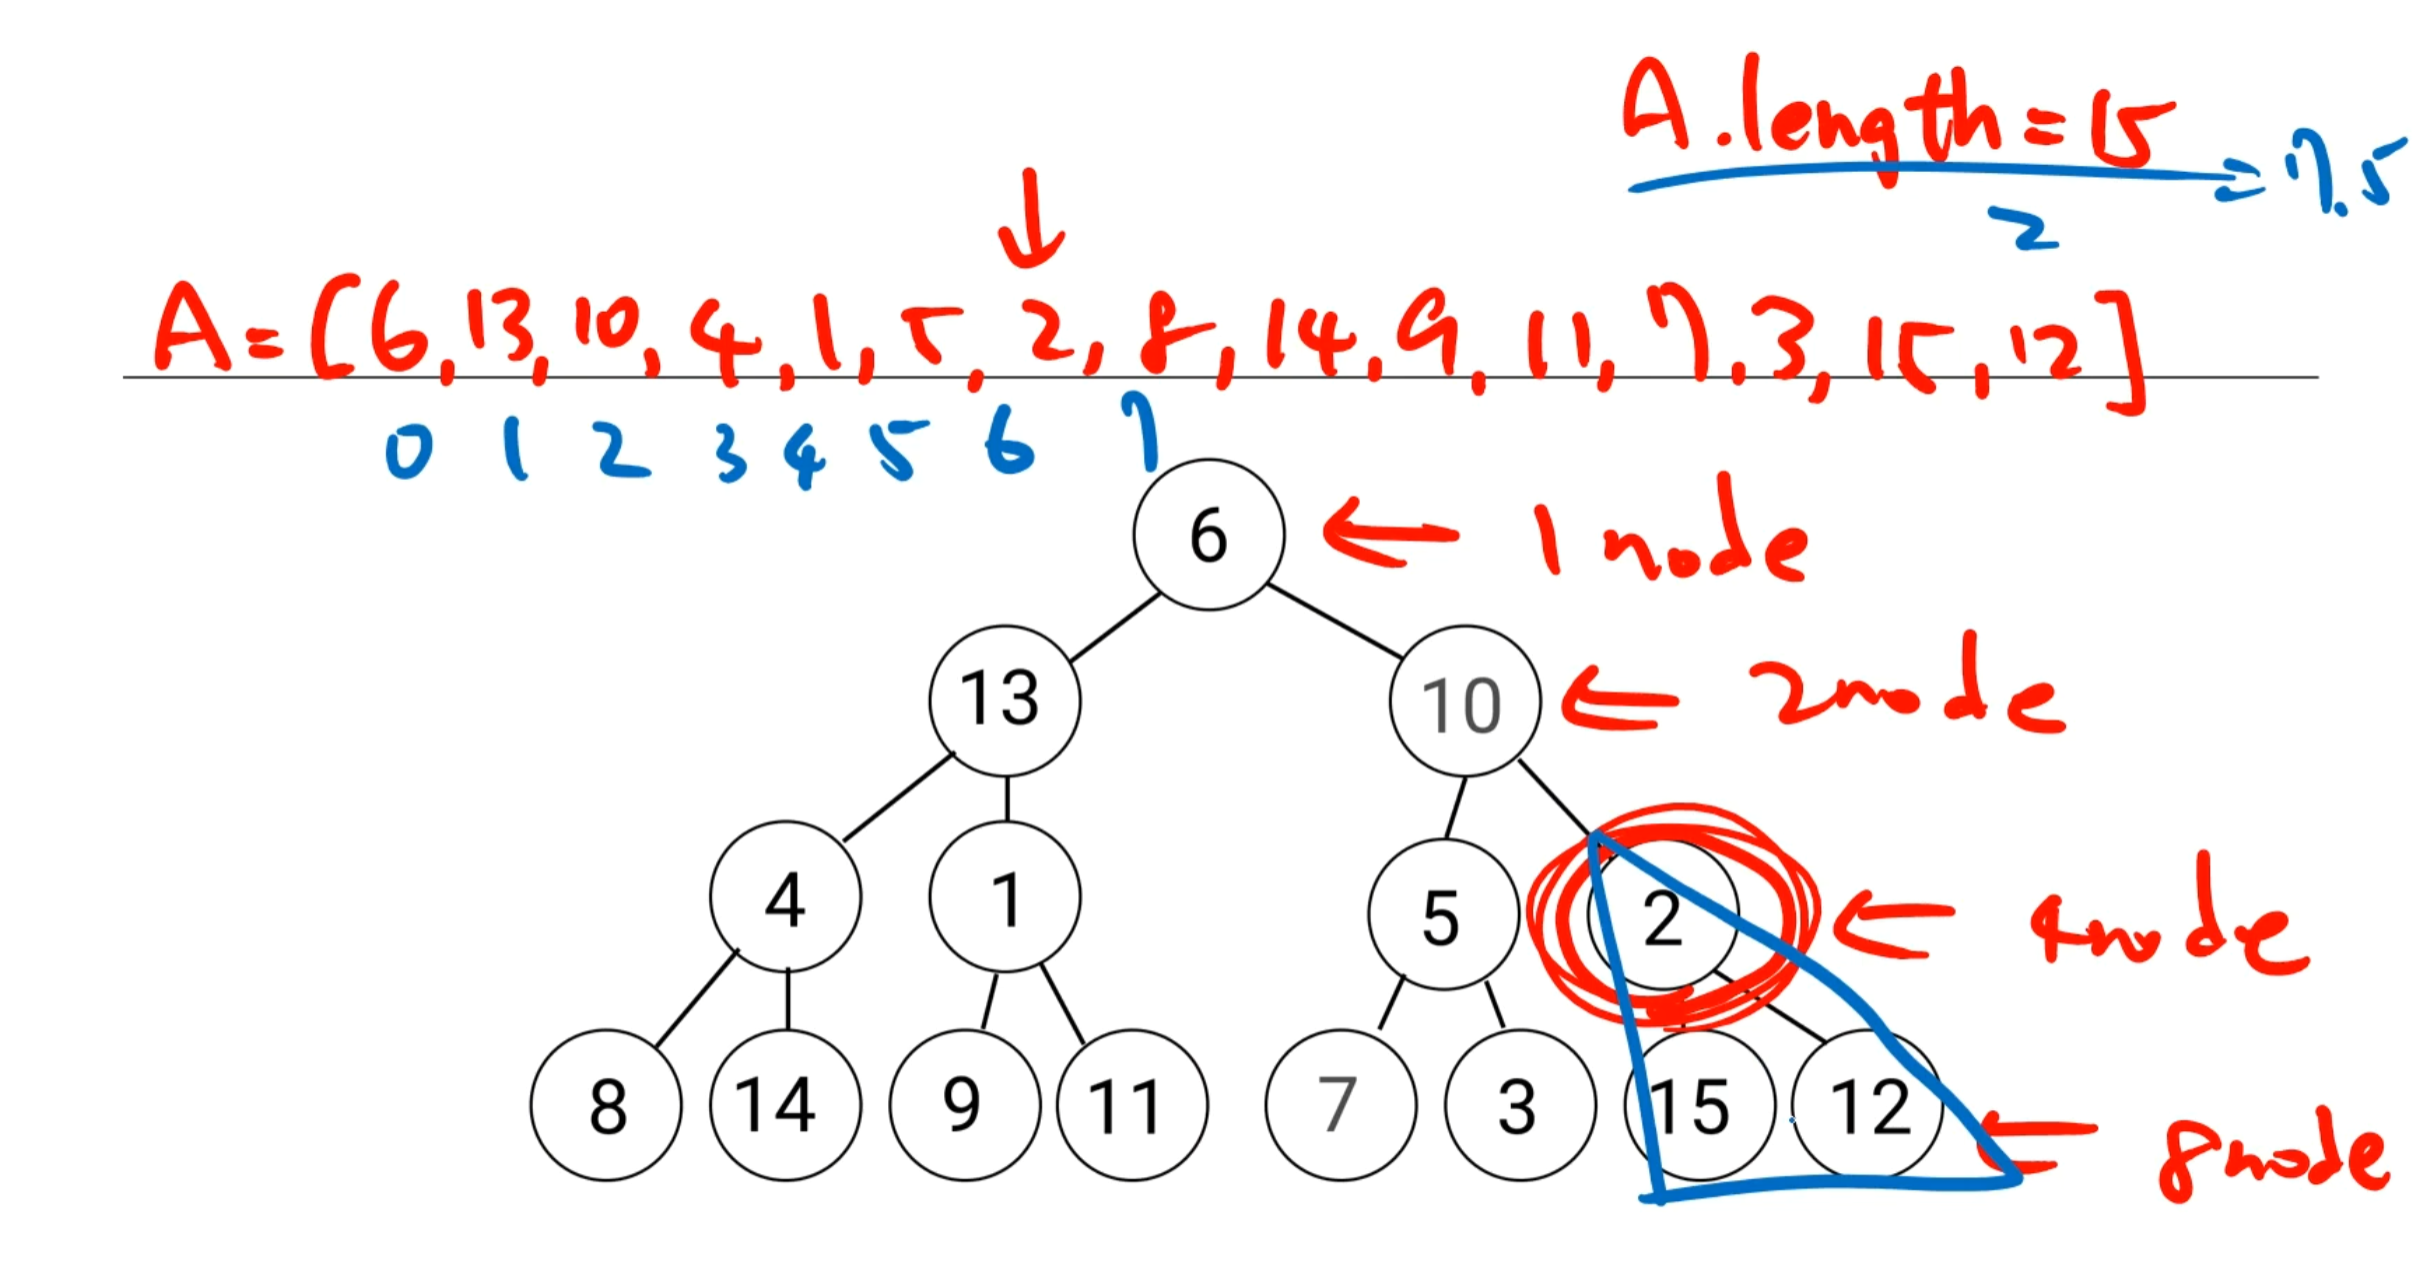 A.length=15
=7.5
2
A=[6,13,10,4,1,5,2,8,14,9,11,7,3,15,12]
0 1 2 3 4 5 6 7
6 ← 1 node
13 10 ← 2node
4 1 5 2 ← 4node
8 14 9 11 7 3 15 12 ← 8node